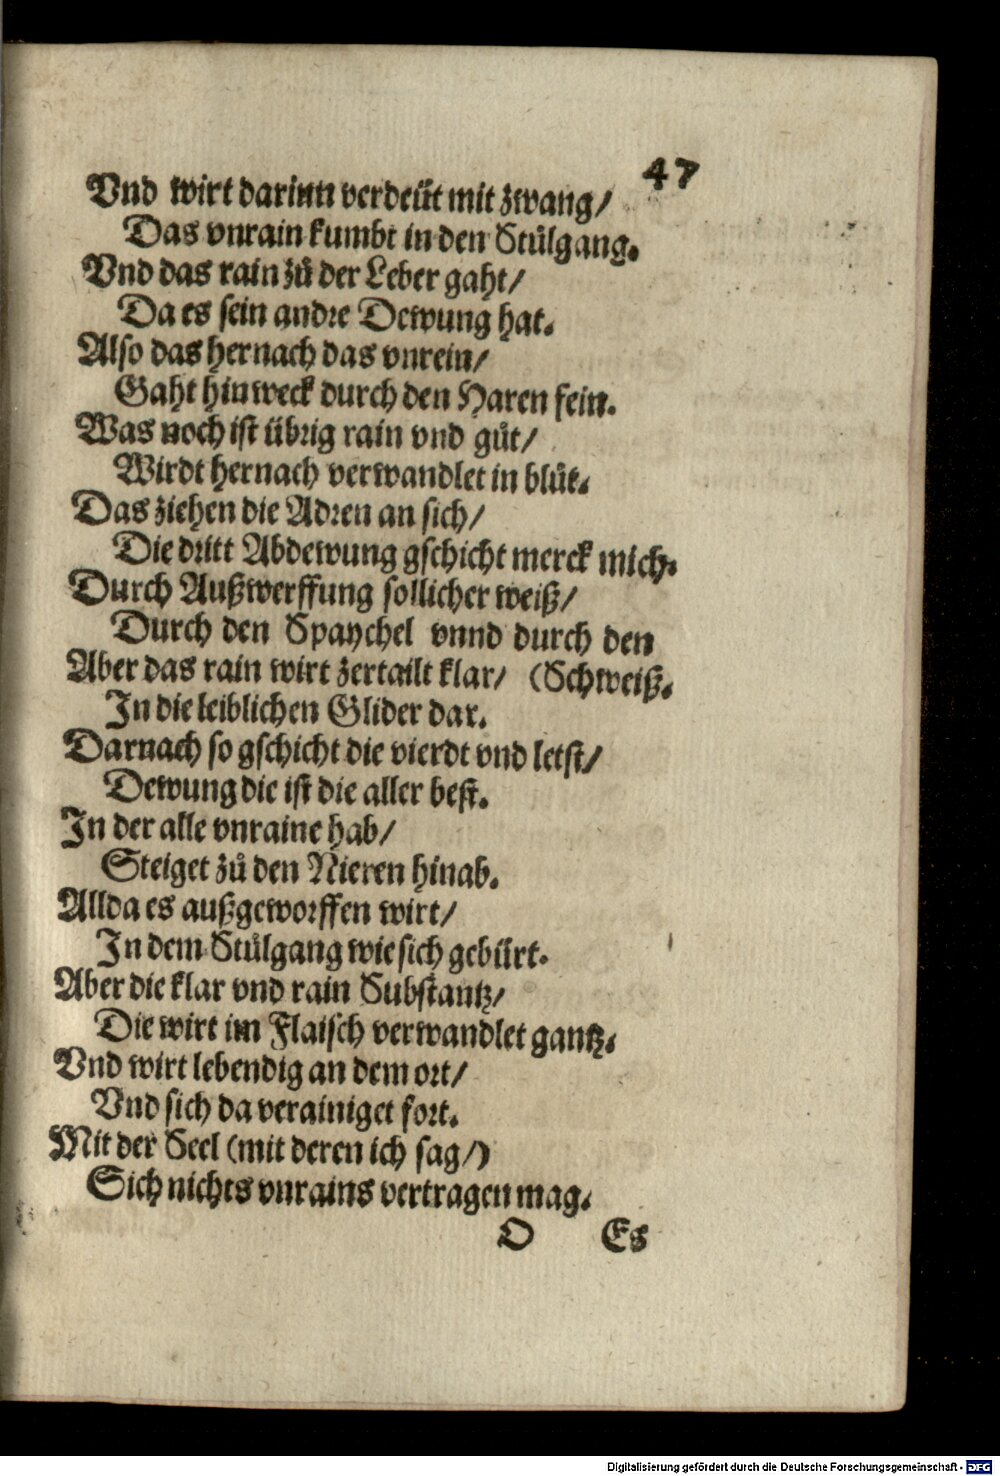 47
Vnd wirt darinn verdeüt mit zwang/
Das vnrain kumbt in den Stůlgang.
Vnd das rain zů der Leber gaht/
Da es sein andre Dewung hat.
Also das hernach das vnrein/
Gaht hinweck durch den Haren fein.
Was noch ist übrig rain vnd gůt/
Wirdt hernach verwandlet in blůt.
Das ziehen die Adren an sich/
Die dritt Abdewung gschicht merck mich.
Durch Außwerffung sollicher weiß/
Durch den Spaychel vnnd durch den
Aber das rain wirt zertailt klar/ (Schweiß.
In die leiblichen Glider dar.
Darnach so gschicht die vierdt vnd letst/
Dewung die ist die aller best.
In der alle vnraine hab/
Steiget zů den Nieren hinab.
Allda es außgeworffen wirt/
In dem Stůlgang wie sich gebürt.
Aber die klar vnd rain Substantz/
Die wirt im Flaisch verwandlet gantz.
Vnd wirt lebendig an dem ort/
Vnd sich da verainiget fort.
Mit der Seel (mit deren ich sag/)
Sich nichts vnrains vertragen mag.
O Es
Digitalisierung gefördert durch die Deutsche Forschungsgemeinschaft - DFG